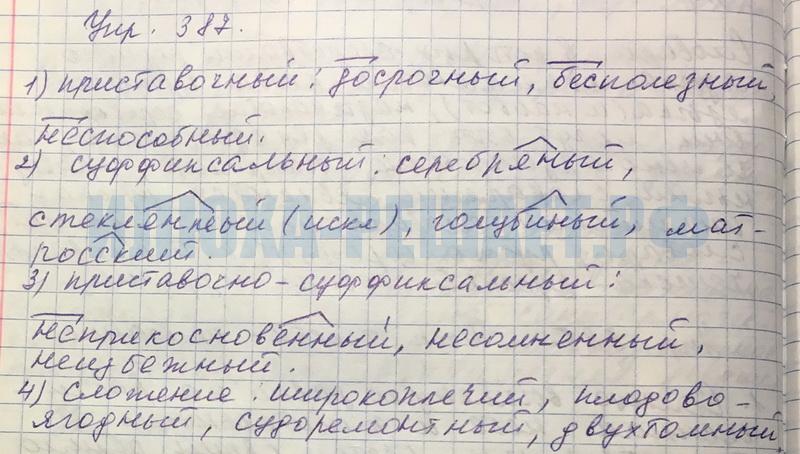 Упр. 387.
1) приставочный: досрочный, бесполезный,
неспособный.
2) суффиксальный: серебряный,
стеклянный (искл), голубиный, мат-
росский.
ИНОХА-РЕШАЕТ.РФ
3) приставочно-суффиксальный:
неприкосновенный, несомненный,
неизбежный.
4) сложение: широкоплечий, плодово-
ягодный, судоремонтный, двухтомный